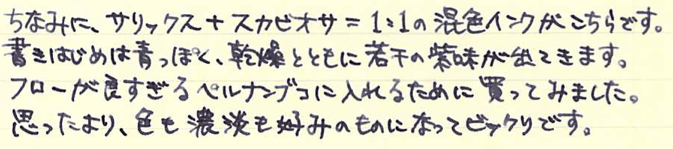 ちなみに、サリックス+スカビオサ=1:1の混色インクがこちらです。
書きはじめは青っぽく、乾燥とともに若干の紫味が出てきます。
フローが良すぎるペルナンブコに入れるために買ってみました。
思ったより、色も濃淡も好みのものになってビックリです。